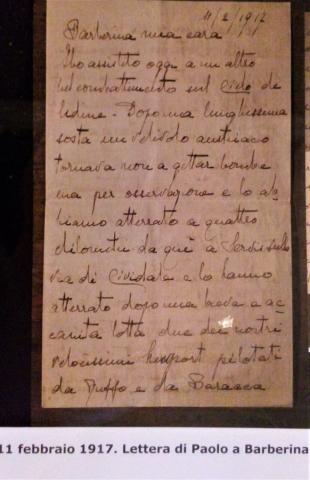 11/2/1917
Barberina mia cara
Ho assistito oggi a un altro
bel combattimento sul cielo di
Udine - Dopo una lunghissima
sosta un velivolo austriaco
tornava non a gittar bombe
ma per osservazione e lo ab
biamo atterrato a quattro
chilometri da qui a
via di Cividale e lo hanno
atterrato dopo una breve e ac
canita lotta due dei nostri
velocissimi Newport pilotati
da Ruffo e da Baracca
11 febbraio 1917. Lettera di Paolo a Barberina